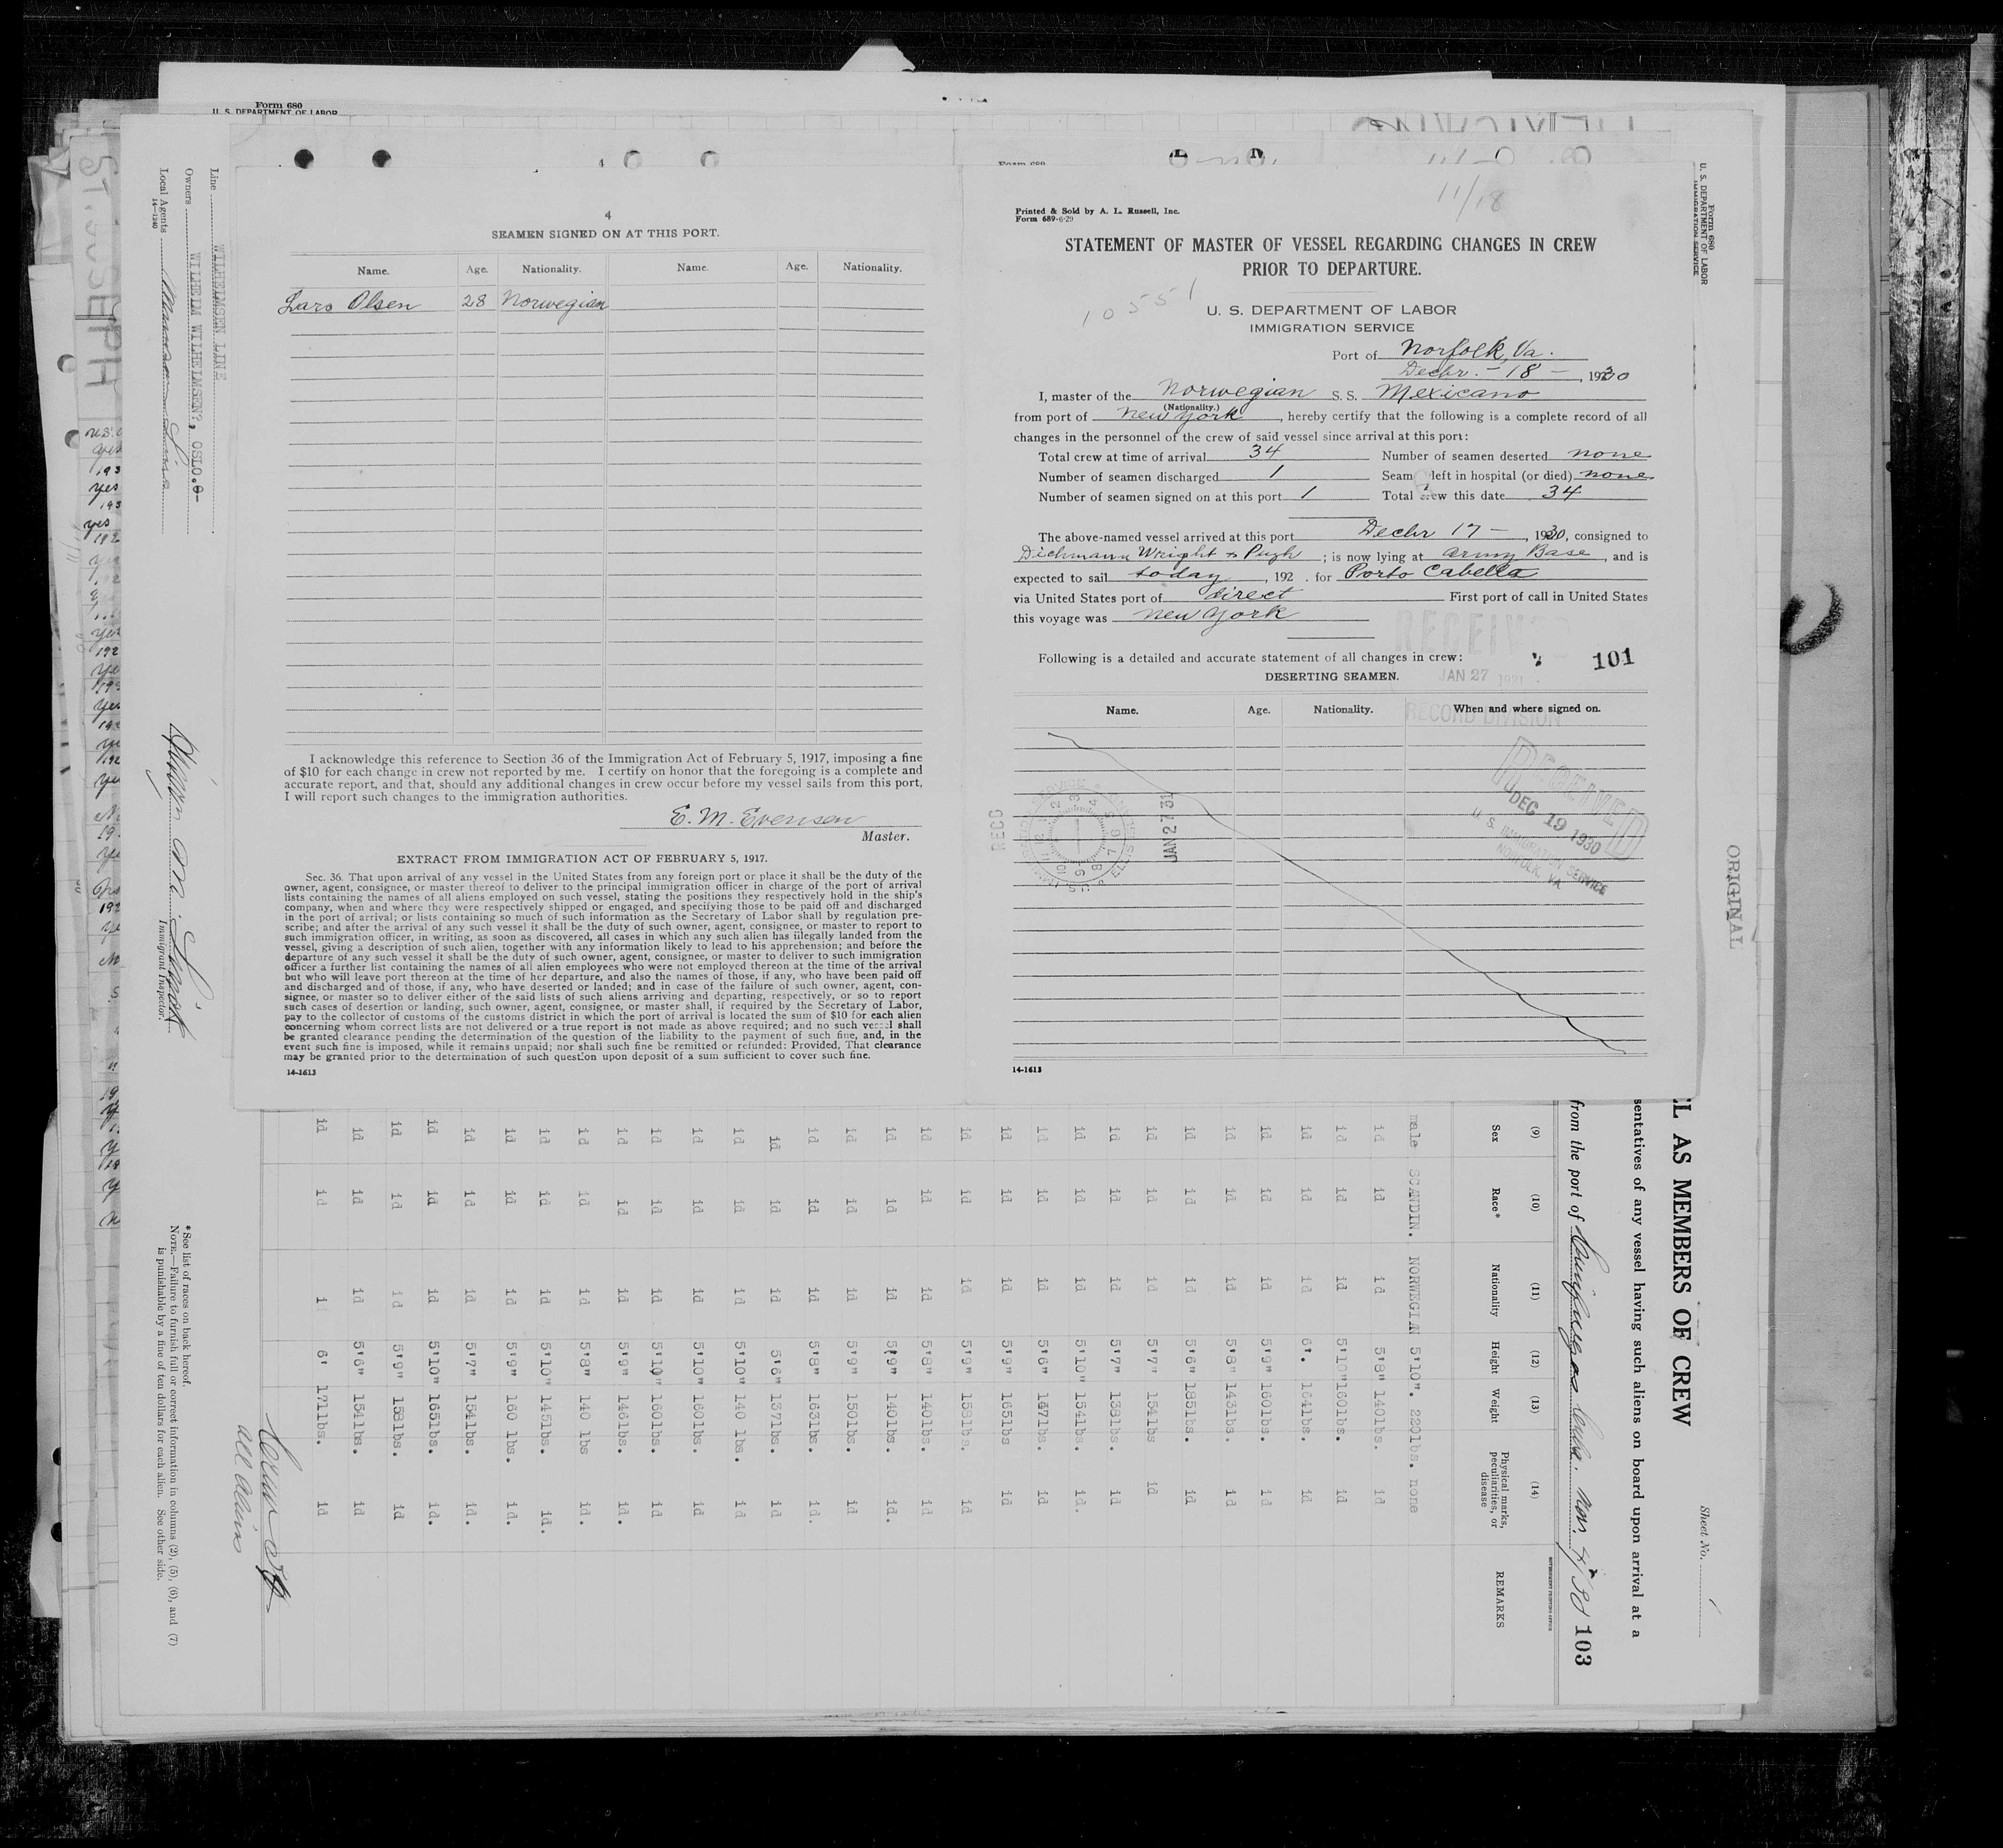 Form 680
U. S. DEPARTMENT OF LABOR
4
SEAMEN SIGNED ON AT THIS PORT.
Name. Age. Nationality. Name. Age. Nationality.
Lars Olsen 28 Norwegian
I acknowledge this reference to Section 36 of the Immigration Act of February 5, 1917, imposing a fine
of $10 for each change in crew not reported by me. I certify on honor that the foregoing is a complete and
accurate report, and that, should any additional changes in crew occur before my vessel sails from this port,
I will report such changes to the immigration authorities.
E. M. Evensen
Master.
EXTRACT FROM IMMIGRATION ACT OF FEBRUARY 5, 1917.
Sec. 36. That upon arrival of any vessel in the United States from any foreign port or place it shall be the duty of the
owner, agent, consignee, or master thereof to deliver to the principal immigration officer in charge of the port of arrival
lists containing the names of all aliens employed on such vessel, stating the positions they respectively hold in the ship's
company, when and where they were respectively shipped or engaged, and specifying those to be paid off and discharged
in the port of arrival; or lists containing so much of such information as the Secretary of Labor shall by regulation pre-
scribe; and after the arrival of any such vessel it shall be the duty of such owner, agent, consignee, or master to report to
such immigration officer, in writing, as soon as discovered, all cases in which any such alien has illegally landed from the
vessel, giving a description of such alien, together with any information likely to lead to his apprehension; and before the
departure of any such vessel it shall be the duty of such owner, agent, consignee, or master to deliver to such immigration
officer a further list containing the names of all alien employees who were not employed thereon at the time of the arrival
but who will leave port thereon at the time of her departure, and also the names of those, if any, who have been paid off
and discharged and of those, if any, who have deserted or landed; and in case of the failure of such owner, agent, con-
signee, or master so to deliver either of the said lists of such aliens arriving and departing, respectively, or so to report
such cases of desertion or landing, such owner, agent, consignee, or master shall, if required by the Secretary of Labor,
pay to the collector of customs of the customs district in which the port of arrival is located the sum of $10 for each alien
concerning whom correct lists are not delivered or a true report is not made as above required; and no such vessel shall
be granted clearance pending the determination of the question of the liability to the payment of such fine, and, in the
event such fine is imposed, while it remains unpaid; nor shall such fine be remitted or refunded: Provided, That clearance
may be granted prior to the determination of such question upon deposit of a sum sufficient to cover such fine.
14-1613
11/18
Printed & Sold by A. L. Russell, Inc.
Form 689-6-29
STATEMENT OF MASTER OF VESSEL REGARDING CHANGES IN CREW
PRIOR TO DEPARTURE.
10551
U. S. DEPARTMENT OF LABOR
IMMIGRATION SERVICE
Port of Norfolk, Va.
Decbr. - 18 - , 1930
I, master of the Norwegian S. S. Mexicano
(Nationality.)
from port of New York, hereby certify that the following is a complete record of all
changes in the personnel of the crew of said vessel since arrival at this port:
Total crew at time of arrival 34 Number of seamen deserted none
Number of seamen discharged 1 Seam left in hospital (or died) none
Number of seamen signed on at this port 1 Total crew this date 34
The above-named vessel arrived at this port Decbr 17 - , 1930, consigned to
Dichmann Wright & Pugh ; is now lying at Army Base, and is
expected to sail today, 192 . for Porto Cabella
via United States port of direct First port of call in United States
this voyage was New York
RECEIVED
Following is a detailed and accurate statement of all changes in crew: 101
DESERTING SEAMEN. JAN 27 1931
RECORD DIVISION
Name. Age. Nationality. When and where signed on.
RECEIVED
DEC 19 1930
U. S. IMMIGRATION SERVICE
NORFOLK, VA.
RECD
JAN 27 31
14-1613
Form 680
U. S. DEPARTMENT OF LABOR
IMMIGRATION SERVICE
ORIGINAL
Line WILHELMSEN LINE
Owners WILHELM WILHELMSEN, OSLO.
Local Agents
14-1240
Immigrant Inspector.
*See list of races on back hereof.
NOTE.—Failure to furnish full or correct information in columns (2), (5), (6), and (7)
is punishable by a fine of ten dollars for each alien. See other side.
all aliens
Sheet No.
L AS MEMBERS OF CREW
sentatives of any vessel having such aliens on board upon arrival at a
from the port of 103
(9) (10) (11) (12) (13) (14)
Sex Race* Nationality Height Weight Physical marks, peculiarities, or disease REMARKS
male SCANDIN. NORWEGIAN 5'10". 220lbs. none
id id id 5'8" 140lbs. id
id id id 5'10" 160lbs. id
id id id 6'. 164lbs. id
id id id 5'9" 160lbs. id
id id id 5'8" 143lbs. id
id id id 5'6" 185lbs. id
id id id 5'7" 154lbs id
id id id 5'7" 138lbs. id
id id id 5'10" 154lbs. id.
id id id 5'6" 147lbs. id
id id id 5'9" 165lbs id
id id id 5'9" 158lbs. id
id id id 5'8" 140lbs. id
id id id 5'9" 140lbs. id.
id id id 5'9" 150lbs. id
id id id 5'8" 163lbs. id.
id id id 5'6" 137lbs. id
id id id 5'10" 140 lbs. id
id id id 5'10" 160lbs. id
id id id 5'10" 160lbs. id
id id id 5'9" 146lbs. id.
id id id 5'8" 140 lbs id.
id id id 5'10" 145lbs. id.
id id id 5'9" 160 lbs. id.
id id id 5'7" 154lbs. id.
id id id 5'10" 165lbs. id.
id id id 5'9" 158lbs. id
id id id 5'6" 154lbs. id
id id id 6' 171lbs. id